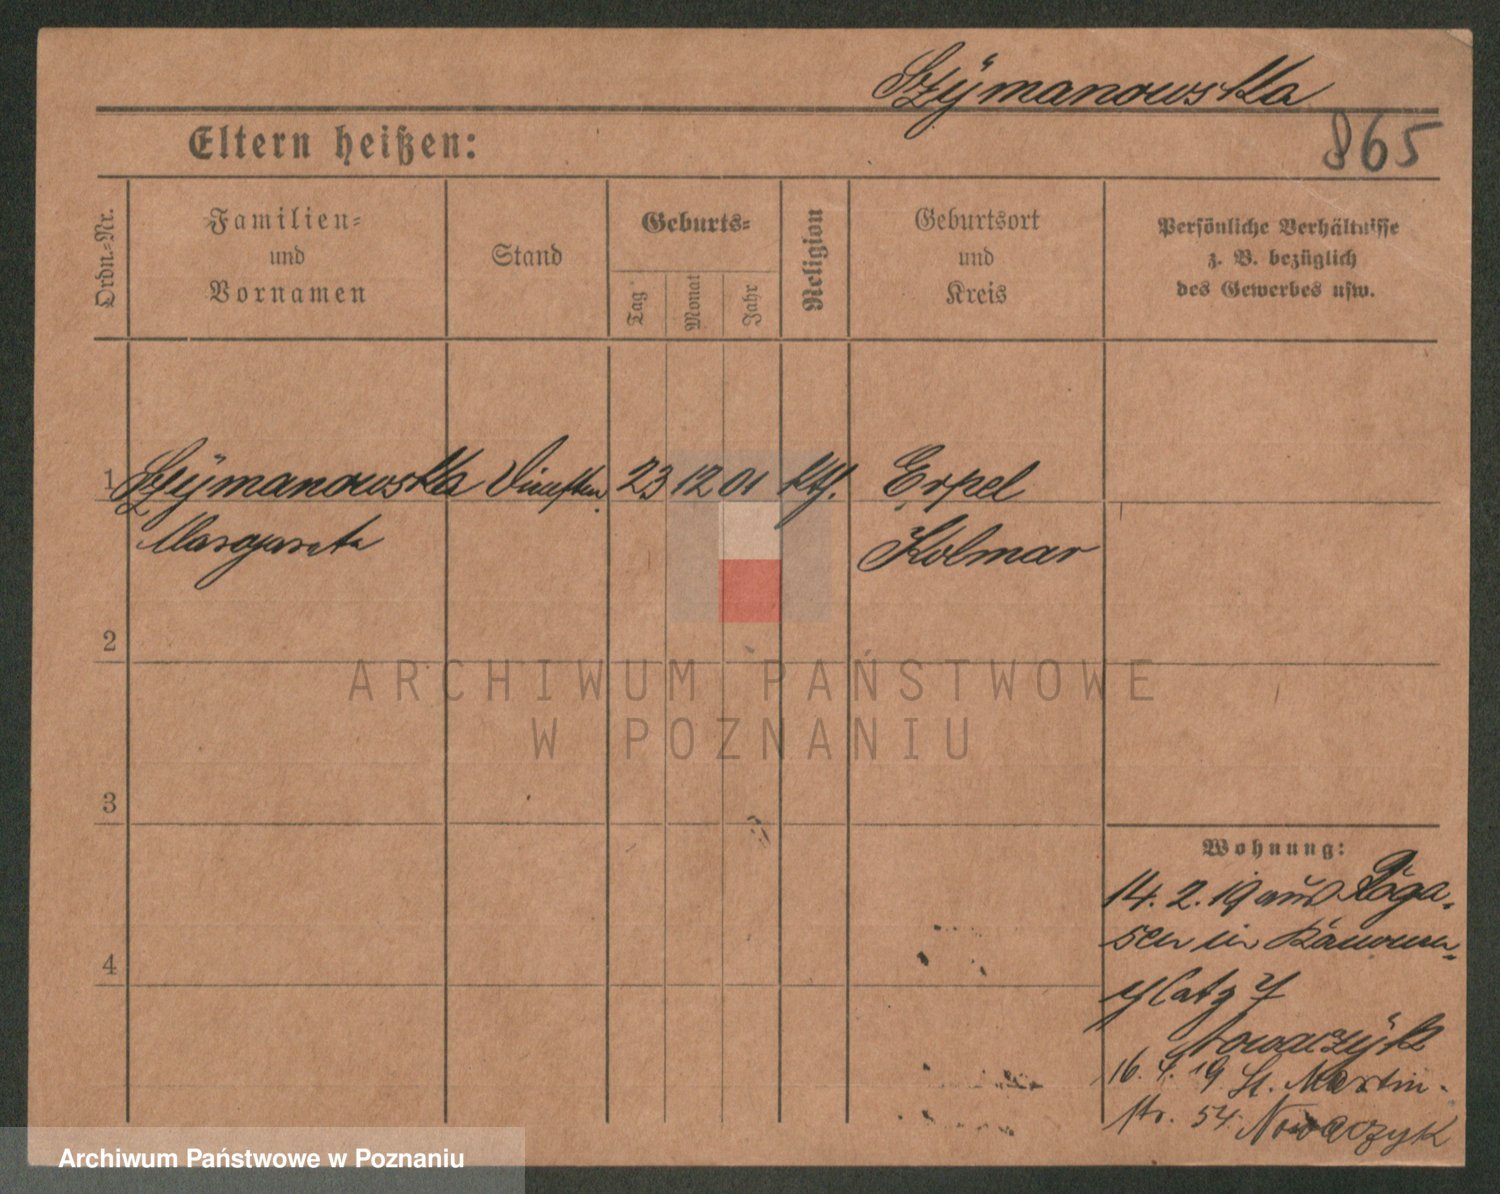 Szÿmanowska
865
Eltern heißen:
Ordn.-Nr.
Familien-
und
Vornamen
Stand
Geburts-
Tag
Monat
Jahr
Religion
Geburtsort
und
Kreis
Persönliche Verhältnisse
z. B. bezüglich
des Gewerbes usw.
1 Szÿmanowska 23 12 01 kth. Erpel
Margareta Kolmar
2
ARCHIWUM PAŃSTWOWE
W POZNANIU
3
Wohnung:
14. 2. 19 aus Roga-
sen in
4
platz 7
Nowaczÿk
16. 4. 19 St. Martin-
str. 54 Nowaczyk
Archiwum Państwowe w Poznaniu